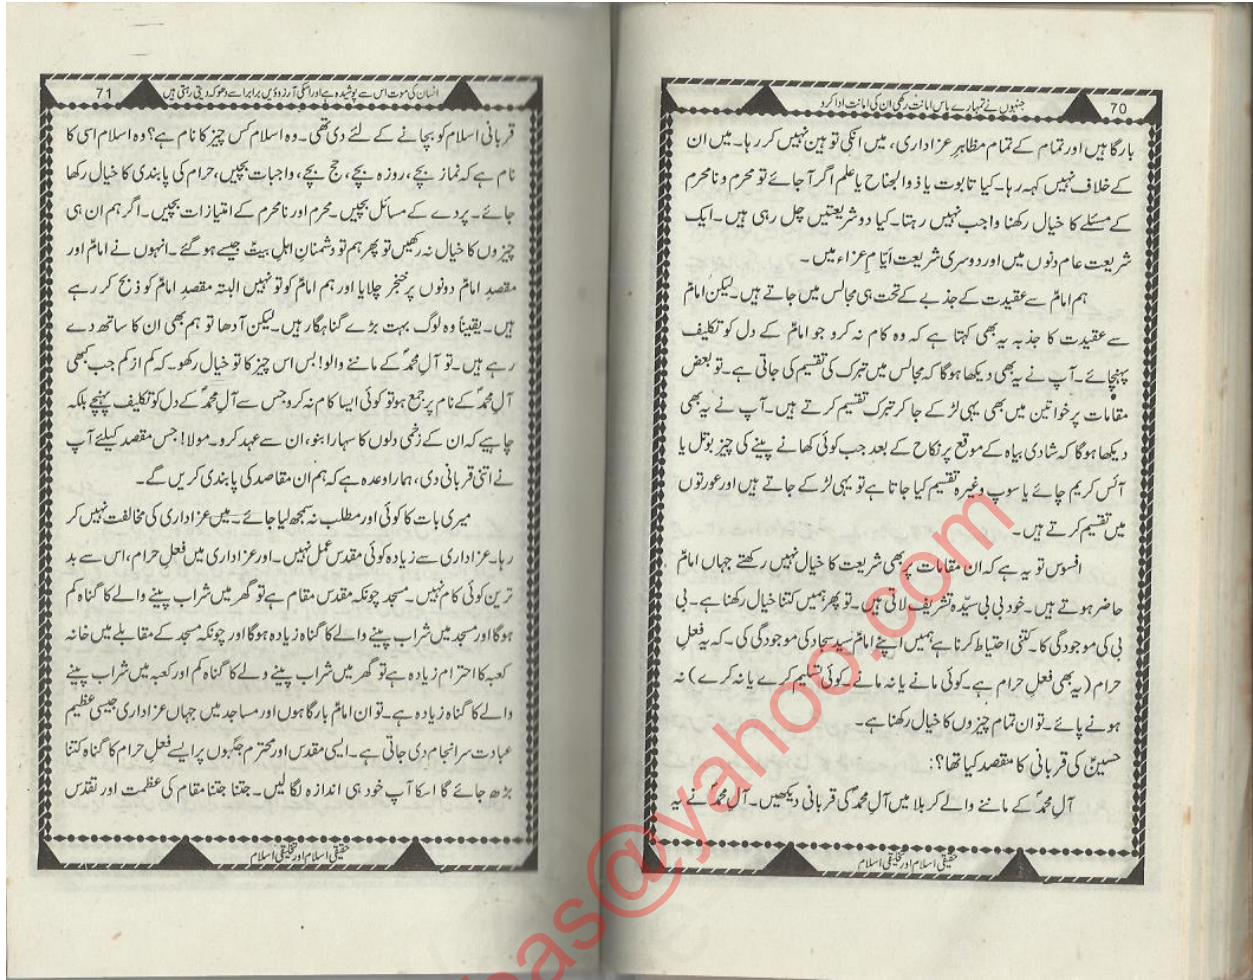 70
جنہوں نے تمہارے پاس امانت رکھی ان کی امانت ادا کرو
بارگاہیں اور تمام کے تمام مظاہرِ عزاداری، میں انکی توہین نہیں کر رہا۔ میں ان
کے خلاف نہیں کہہ رہا۔ کیا تابوت یا ذوالجناح یا علم اگر آ جائے تو محرم و نامحرم
کے مسئلے کا خیال رکھنا واجب نہیں رہتا۔ کیا دو شریعتیں چل رہی ہیں۔ ایک
شریعت عام دنوں میں اور دوسری شریعت ایّامِ عزاء میں۔
ہم امامؑ سے عقیدت کے جذبے کے تحت ہی مجالس میں جاتے ہیں۔ لیکن امامؑ
سے عقیدت کا جذبہ یہ بھی کہتا ہے کہ وہ کام نہ کرو جو امامؑ کے دل کو تکلیف
پہنچائے۔ آپ نے یہ بھی دیکھا ہوگا کہ مجالس میں تبرک کی تقسیم کی جاتی ہے۔ تو بعض
مقامات پر خواتین میں بھی یہی لڑکے جا کر تبرک تقسیم کرتے ہیں۔ آپ نے یہ بھی
دیکھا ہوگا کہ شادی بیاہ کے موقع پر نکاح کے بعد جب کوئی کھانے پینے کی چیز بوتل یا
آئس کریم چائے یا سوپ وغیرہ تقسیم کیا جاتا ہے تو یہی لڑکے جاتے ہیں اور عورتوں
میں تقسیم کرتے ہیں۔
افسوس تو یہ ہے کہ ان مقامات پر بھی شریعت کا خیال نہیں رکھتے جہاں امامؑ
حاضر ہوتے ہیں۔ خود بی بی سیّدہ تشریف لاتی ہیں۔ تو پھر ہمیں کتنا خیال رکھنا ہے۔ بی
بی کی موجودگی کا۔ کتنی احتیاط کرنا ہے ہمیں اپنے امامؑ سیّد سجادؑ کی موجودگی کی۔ کہ یہ فعلِ
حرام (یہ بھی فعلِ حرام ہے۔ کوئی مانے یا نہ مانے۔ کوئی تسلیم کرے یا نہ کرے) نہ
ہونے پائے۔ تو ان تمام چیزوں کا خیال رکھنا ہے۔
حسینؑ کی قربانی کا مقصد کیا تھا؟:
آلِ محمدؐ کے ماننے والے کربلا میں آلِ محمدؐ کی قربانی دیکھیں۔ آلِ محمدؐ نے یہ
حقیقی اسلام اور تخلیقی اسلام
71
انسان کی موت اس سے پوشیدہ ہے اور انکی آرزوئیں برابر اسے دھوکہ دیتی رہتی ہیں
قربانی اسلام کو بچانے کے لئے دی تھی۔ وہ اسلام کس چیز کا نام ہے؟ وہ اسلام اسی کا
نام ہے کہ نماز بچے، روزہ بچے، حج بچے، واجبات بچیں، حرام کی پابندی کا خیال رکھا
جائے۔ پردے کے مسائل بچیں۔ محرم اور نامحرم کے امتیازات بچیں۔ اگر ہم ان ہی
چیزوں کا خیال نہ رکھیں تو پھر ہم تو دشمنانِ اہلِ بیتؑ جیسے ہو گئے۔ انہوں نے امامؑ اور
مقصدِ امامؑ دونوں پر خنجر چلایا اور ہم امامؑ کو تو نہیں البتہ مقصدِ امامؑ کو ذبح کر رہے
ہیں۔ یقیناً وہ لوگ بہت بڑے گناہگار ہیں۔ لیکن آدھا تو ہم بھی ان کا ساتھ دے
رہے ہیں۔ تو آلِ محمدؐ کے ماننے والو! بس اس چیز کا تو خیال رکھو۔ کہ کم از کم جب کبھی
آلِ محمدؐ کے نام پر جمع ہو تو کوئی ایسا کام نہ کرو جس سے آلِ محمدؐ کے دل کو تکلیف پہنچے بلکہ
چاہیے کہ ان کے زخمی دلوں کا سہارا بنو، ان سے عہد کرو۔ مولا! جس مقصد کیلئے آپ
نے اتنی قربانی دی، ہمارا وعدہ ہے کہ ہم ان مقاصد کی پابندی کریں گے۔
میری بات کا کوئی اور مطلب نہ سمجھ لیا جائے۔ میں عزاداری کی مخالفت نہیں کر
رہا۔ عزاداری سے زیادہ کوئی مقدس عمل نہیں۔ اور عزاداری میں فعلِ حرام، اس سے بد
ترین کوئی کام نہیں۔ مسجد چونکہ مقدس مقام ہے تو گھر میں شراب پینے والے کا گناہ کم
ہوگا اور مسجد میں شراب پینے والے کا گناہ زیادہ ہوگا اور چونکہ مسجد کے مقابلے میں خانہ
کعبہ کا احترام زیادہ ہے تو گھر میں شراب پینے ولے کا گناہ کم اور کعبہ میں شراب پینے
والے کا گناہ زیادہ ہے۔ تو ان امامؑ بارگاہوں اور مساجد میں جہاں عزاداری جیسی عظیم
عبادت سر انجام دی جاتی ہے۔ ایسی مقدس اور محترم جگہوں پر ایسے فعلِ حرام کا گناہ کتنا
بڑھ جائے گا اسکا آپ خود ہی اندازہ لگا لیں۔ جتنا جتنا مقام کی عظمت اور تقدس
حقیقی اسلام اور تخلیقی اسلام
bas@yahoo.com